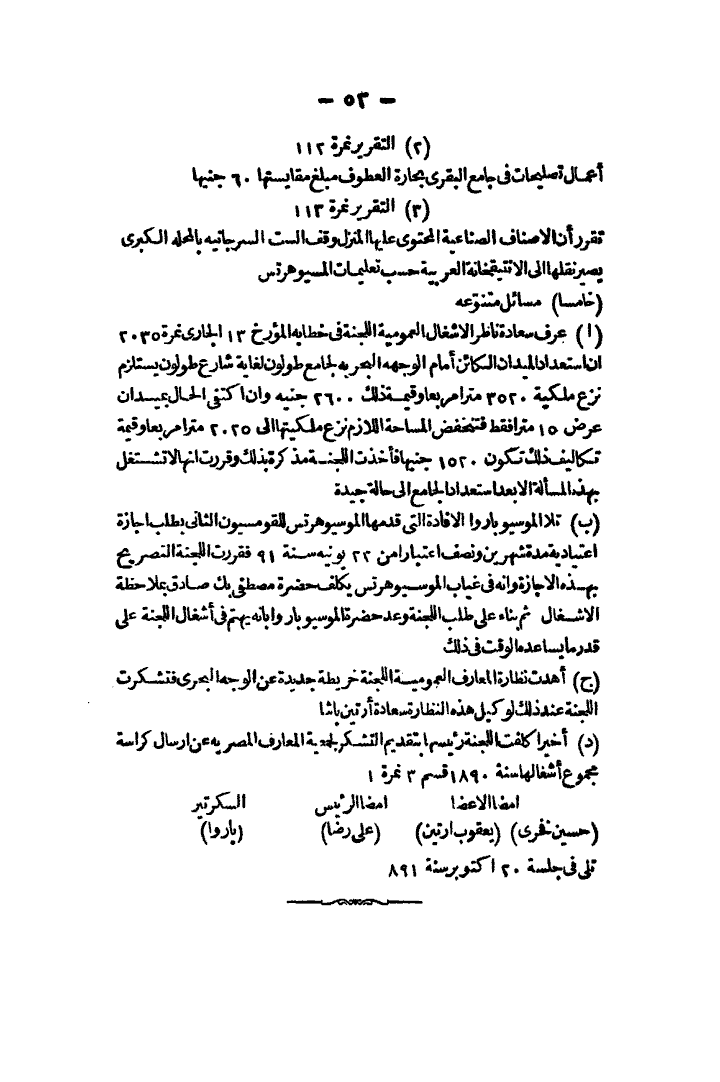 — ٥٣ —
(٢) التقرير نمرة ١١٢
أعمال تصليحات فى جامع البقرى بحارة العطوف مبلغ مقايستها ٦٠ جنيها
(٣) التقرير نمرة ١١٣
تقرر أن الاصناف الصناعية المحتوى عليها المنزل وقف الست السرجانيه بالمحله الكبرى
يصير نقلها الى الانتيقخانة العربية حسب تعليمات المسيو هرتس
(خامسا) مسائل متنوعه
(ا) عرف سعادة ناظر الاشغال العمومية اللجنة فى خطابه المؤرخ ١٣ الجارى نمرة ٢٠٣٥
ان استعداد الميدان الكائن أمام الوجهه البحريه لجامع طولون لغاية شارع طولون يستلزم
نزع ملكية ٣٥٢٠ مترا مربعا وقيمة ذلك ٢٦٠٠ جنيه وان اكتفى الحال بميدان
عرض ١٥ مترا فقط فتنخفض المساحة اللازم نزع ملكيتها الى ٢٠٢٥ مترا مربعا وقيمة
تكاليف ذلك تكون ١٥٢٠ جنيها فأخذت اللجنة مذكرة بذلك وقررت انها لا تشتغل
بهذه المسألة الا بعد استعداد الجامع الى حالة جيدة
(ب) تلا الموسيو باروا الافادة التى قدمها الموسيو هرتس للقومسيون الثانى بطلب اجازة
اعتيادية مدة شهرين ونصف اعتبارا من ٢٢ يونيه سنة ٩١ فقررت اللجنة التصريح
بهذه الاجازة وانه فى غياب الموسيو هرتس يكلف حضرة مصطفى بك صادق بملاحظة
الاشغال ثم بناء على طلب اللجنة وعد حضرة الموسيو باروا بانه يهتم فى أشغال اللجنة على
قدر ما يساعده الوقت فى ذلك
(ج) أهدت نظارة المعارف العموميسة اللجنة خريطة جديدة عن الوجه البحرى فتشكرت
اللجنة عند ذلك لوكيل هذه النظارة سعادة أرتين باشا
(د) أخيرا كلفت اللجنة رئيسها بتقديم التشكر لجمعية المعارف المصريه عن ارسال كراسة
مجموع أشغالها سنة ١٨٩٠ قسم ٣ نمرة ١
امضا الاعضا امضا الرئيس السكرتير
(حسين فخرى) (يعقوب ارتين) (على رضا) (باروا)
تلى فى جلسة ٢٠ اكتوبر سنة ٨٩١